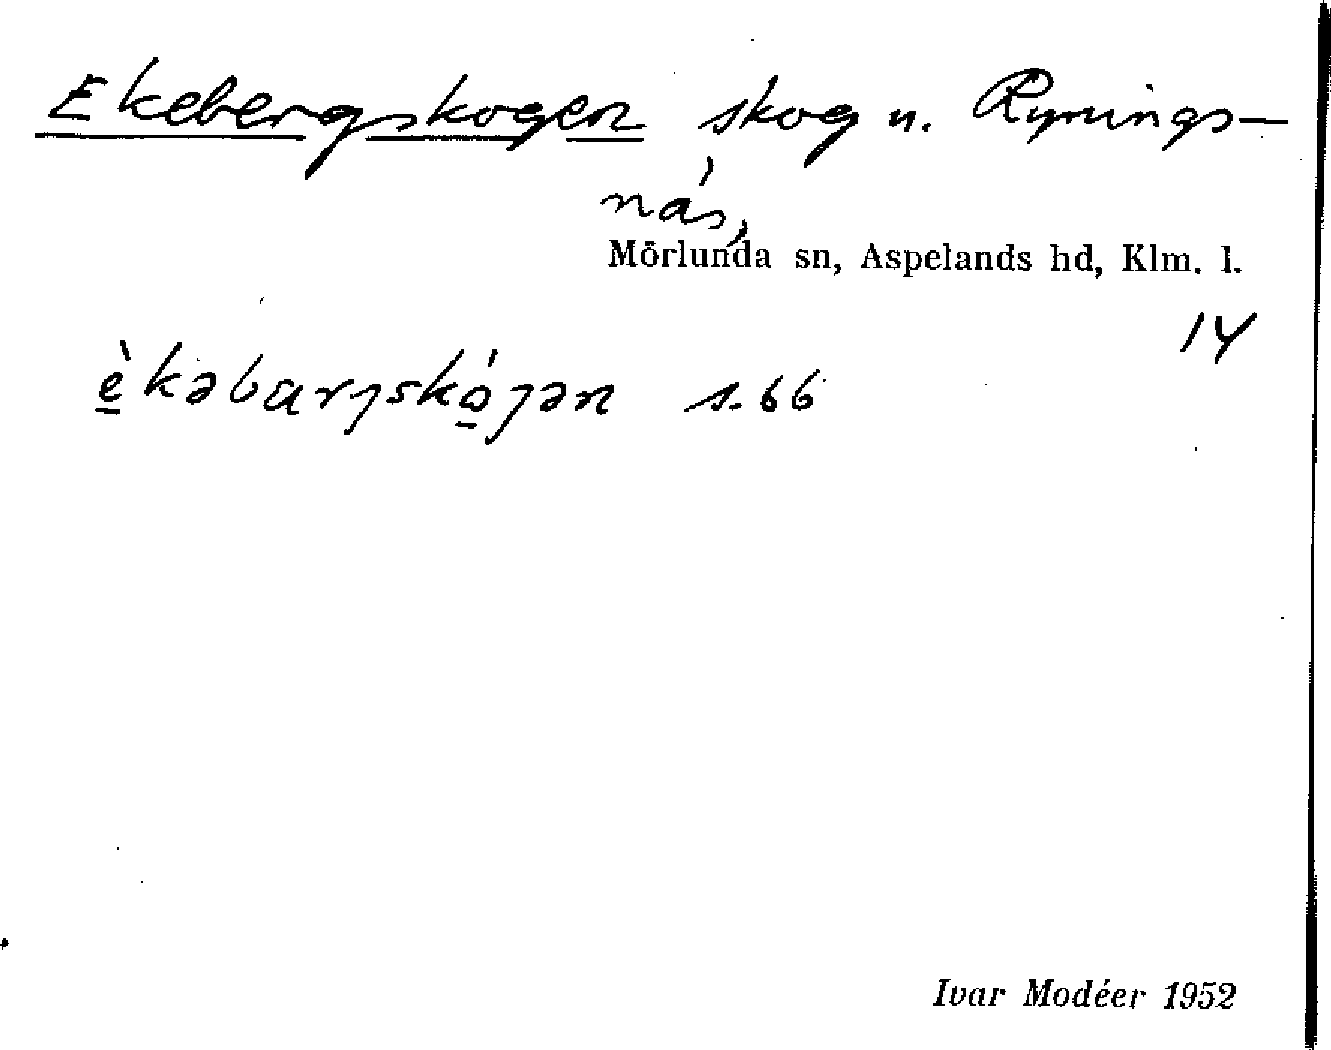 Ekebergskogen skog u. Rynings-
nás,
Mörlunda sn, Aspelands hd, Klm. l.
14
è̠kəbarȷskó̠ȷən s. 66
Ivar Modéer 1952